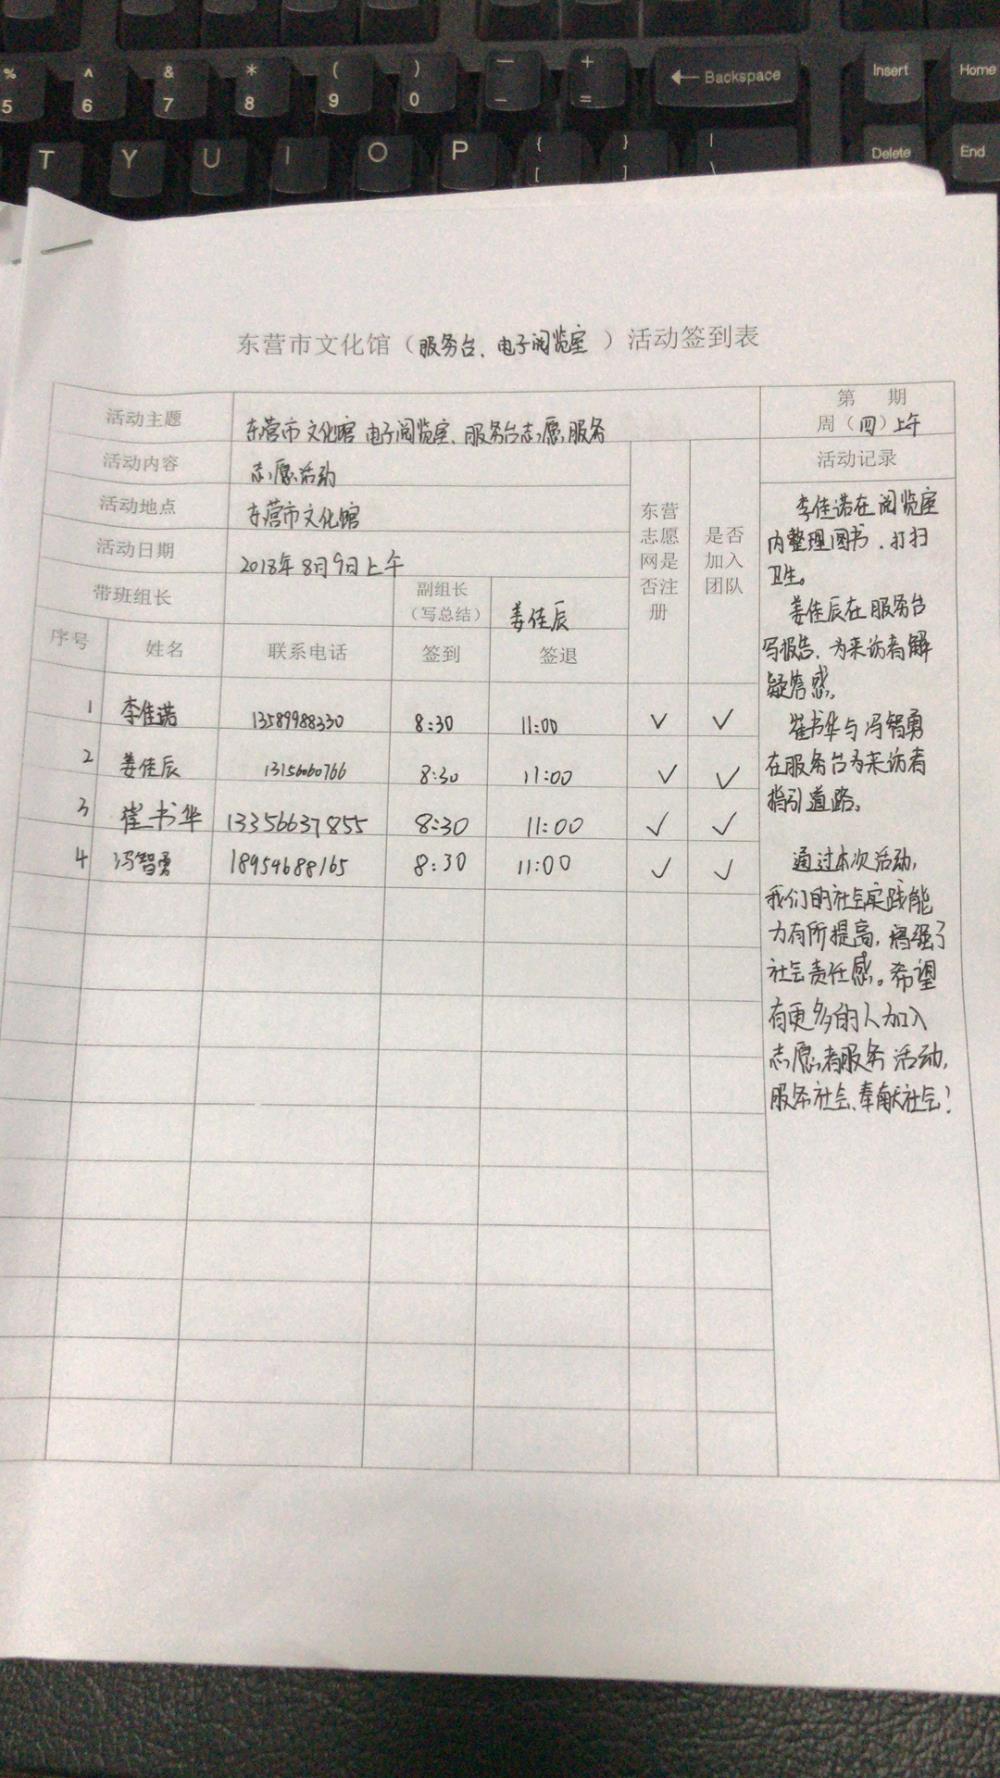 % ^ & * ( ) — + ← Backspace Insert Home
5 6 7 8 9 0 - =
T Y U I O P { } | Delete End
[ ] \
东营市文化馆（服务台、电子阅览室）活动签到表
活动主题 东营市文化馆电子阅览室、服务台志愿服务 第 期
周（四）上午
活动内容 志愿活动 活动记录
活动地点 东营市文化馆
活动日期 2018年8月9日上午
带班组长 副组长（写总结） 姜佳辰
东营志愿网是否注册 是否加入团队
序号 姓名 联系电话 签到 签退
1 李佳诺 13589988330 8:30 11:00 ✓ ✓
2 姜佳辰 13156060766 8:30 11:00 ✓ ✓
3 崔书华 13356637855 8:30 11:00 ✓ ✓
4 冯智勇 18954688165 8:30 11:00 ✓ ✓
李佳诺在阅览室
内整理图书、打扫
卫生。
姜佳辰在服务台
写报告，为来访者解
疑答惑。
崔书华与冯智勇
在服务台为来访者
指引道路。
通过本次活动，
我们的社会实践能
力有所提高，增强了
社会责任感。希望
有更多的人加入
志愿者服务活动，
服务社会、奉献社会！